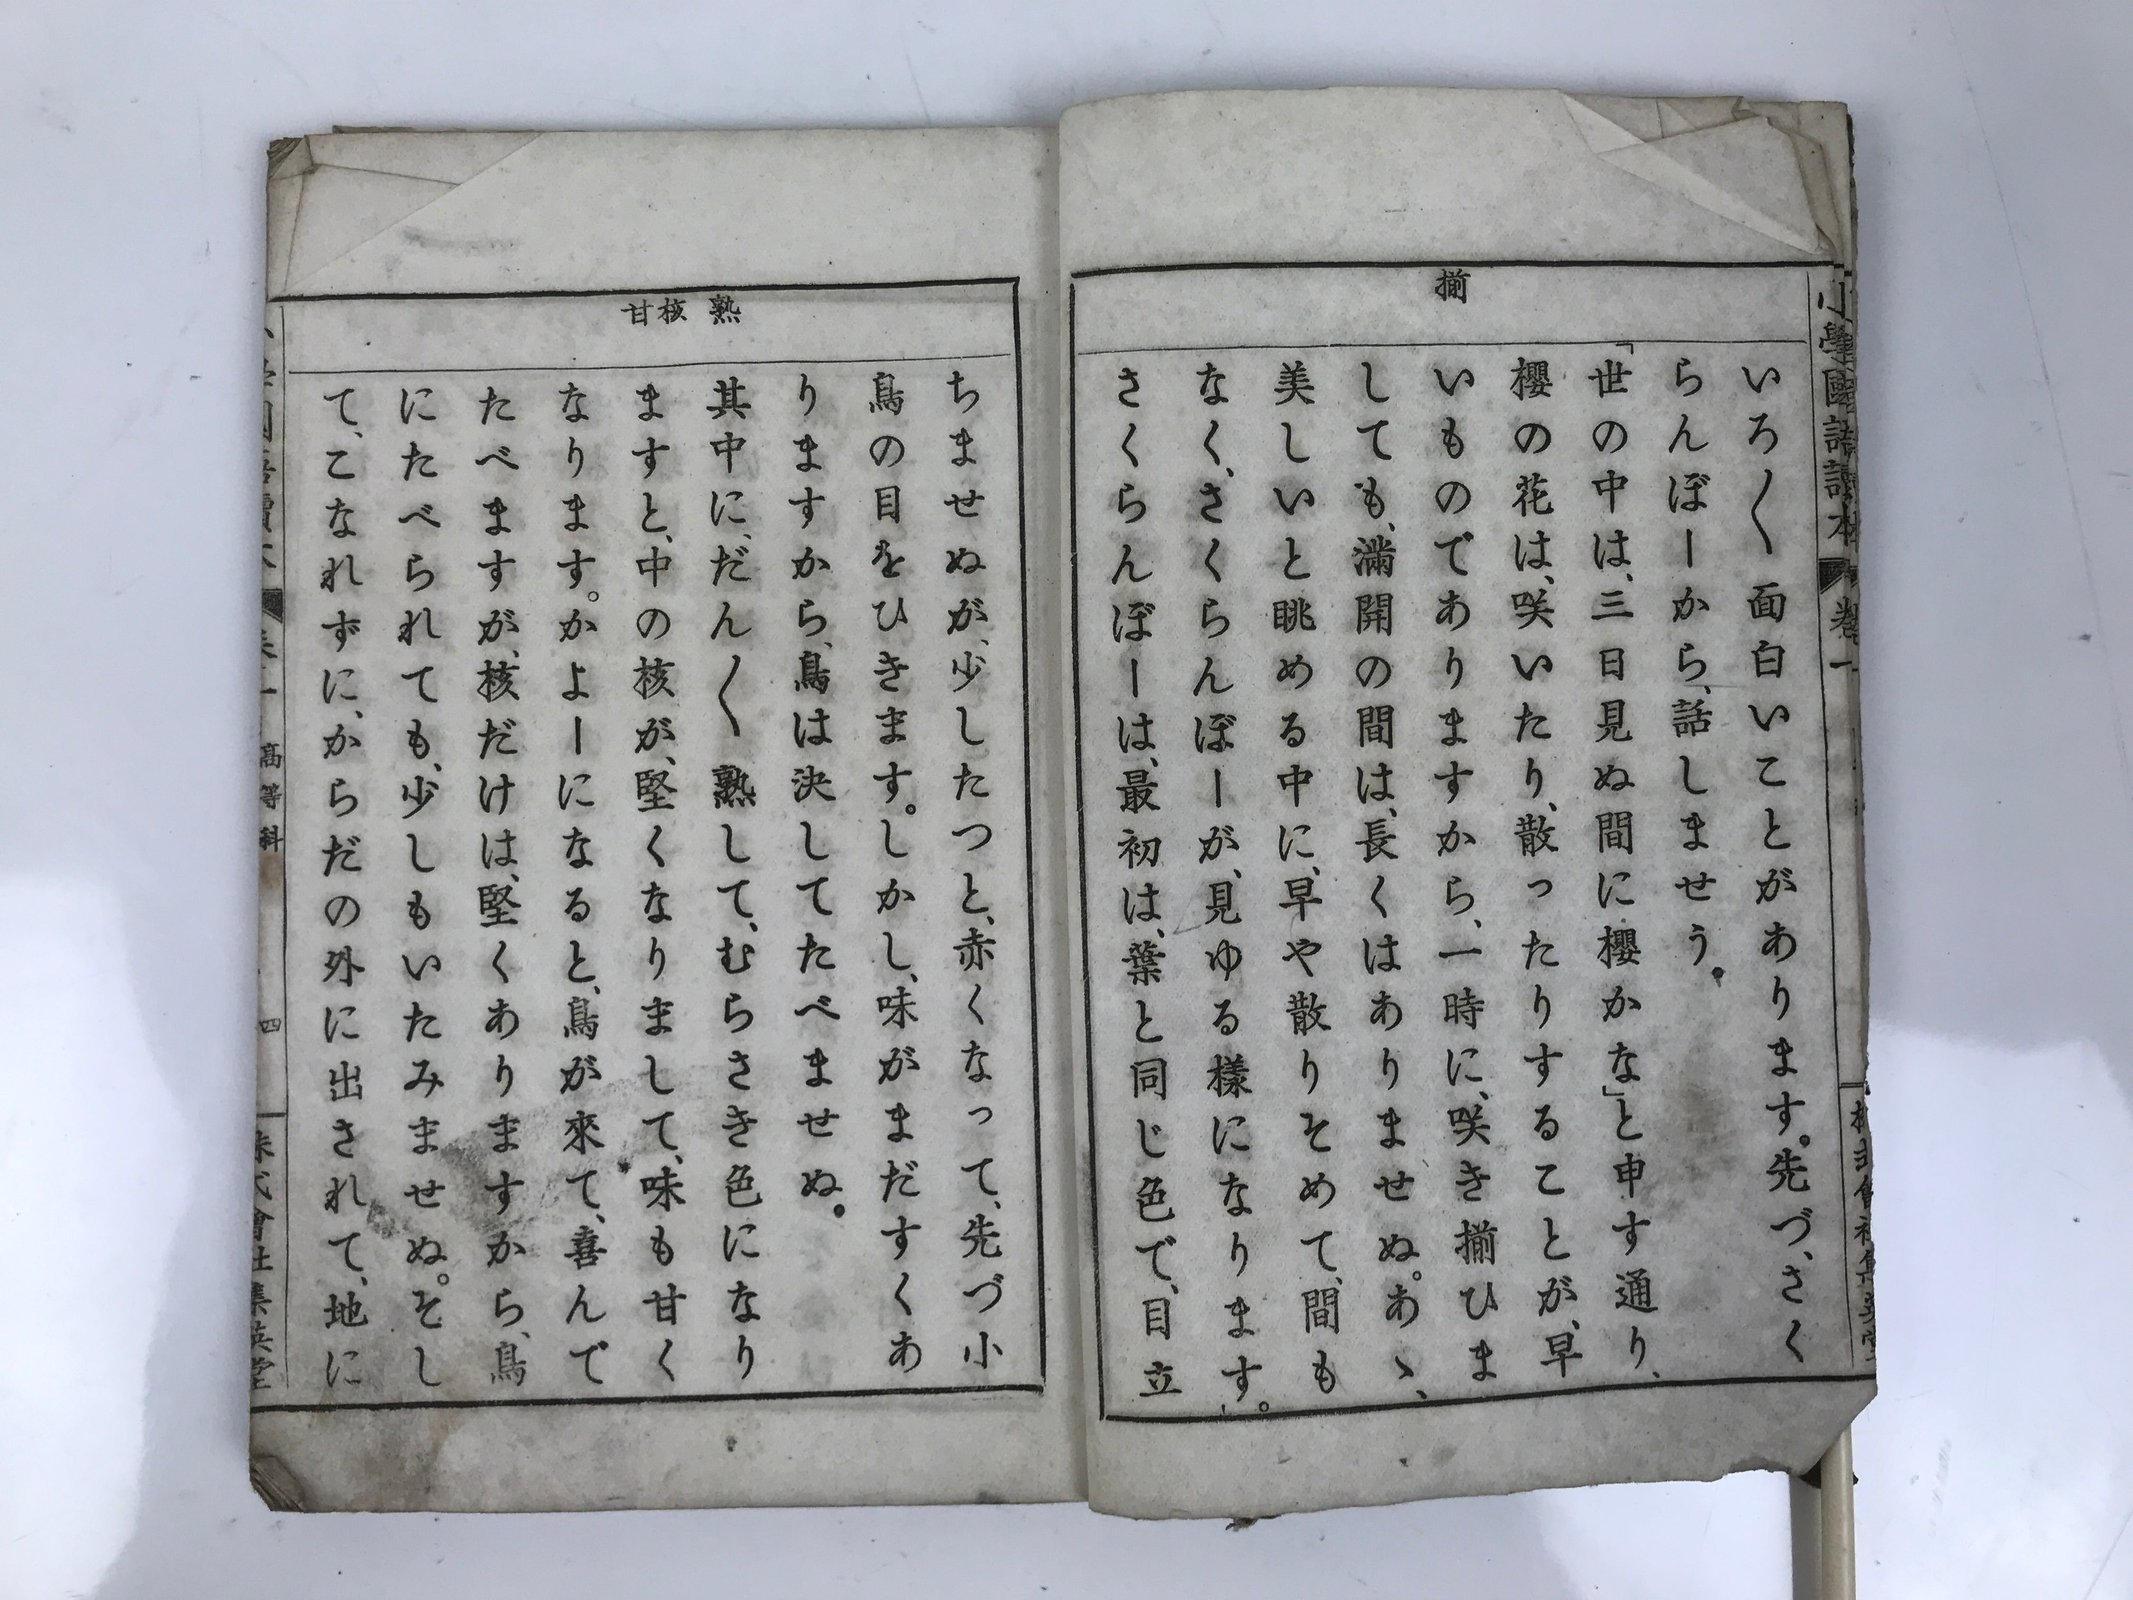 小學國語讀本 卷一
揃
いろ〱面白いことがあります。先づ、さく
らんぼーから、話しませう。
「世の中は、三日見ぬ間に櫻かな」と申す通り、
櫻の花は、咲いたり、散ったりすることが、早
いものでありますから、一時に、咲き揃ひま
しても、滿開の間は、長くはありませぬ。あゝ、
美しいと眺める中に、早や散りそめて、間も
なく、さくらんぼーが、見ゆる樣になります。
さくらんぼーは、最初は、葉と同じ色で、目立
熟 核 甘
ちませぬが、少したつと、赤くなって、先づ小
鳥の目をひきます。しかし、味がまだすくあ
りますから、鳥は決してたべませぬ。
其中に、だん〱熟して、むらさき色になり
ますと、中の核が、堅くなりまして、味も甘く
なります。かよーになると、鳥が來て、喜んで
たべますが、核だけは、堅くありますから、鳥
にたべられても、少しもいたみませぬ。そし
て、こなれずに、からだの外に出されて、地に
高等科 四 會社集英堂